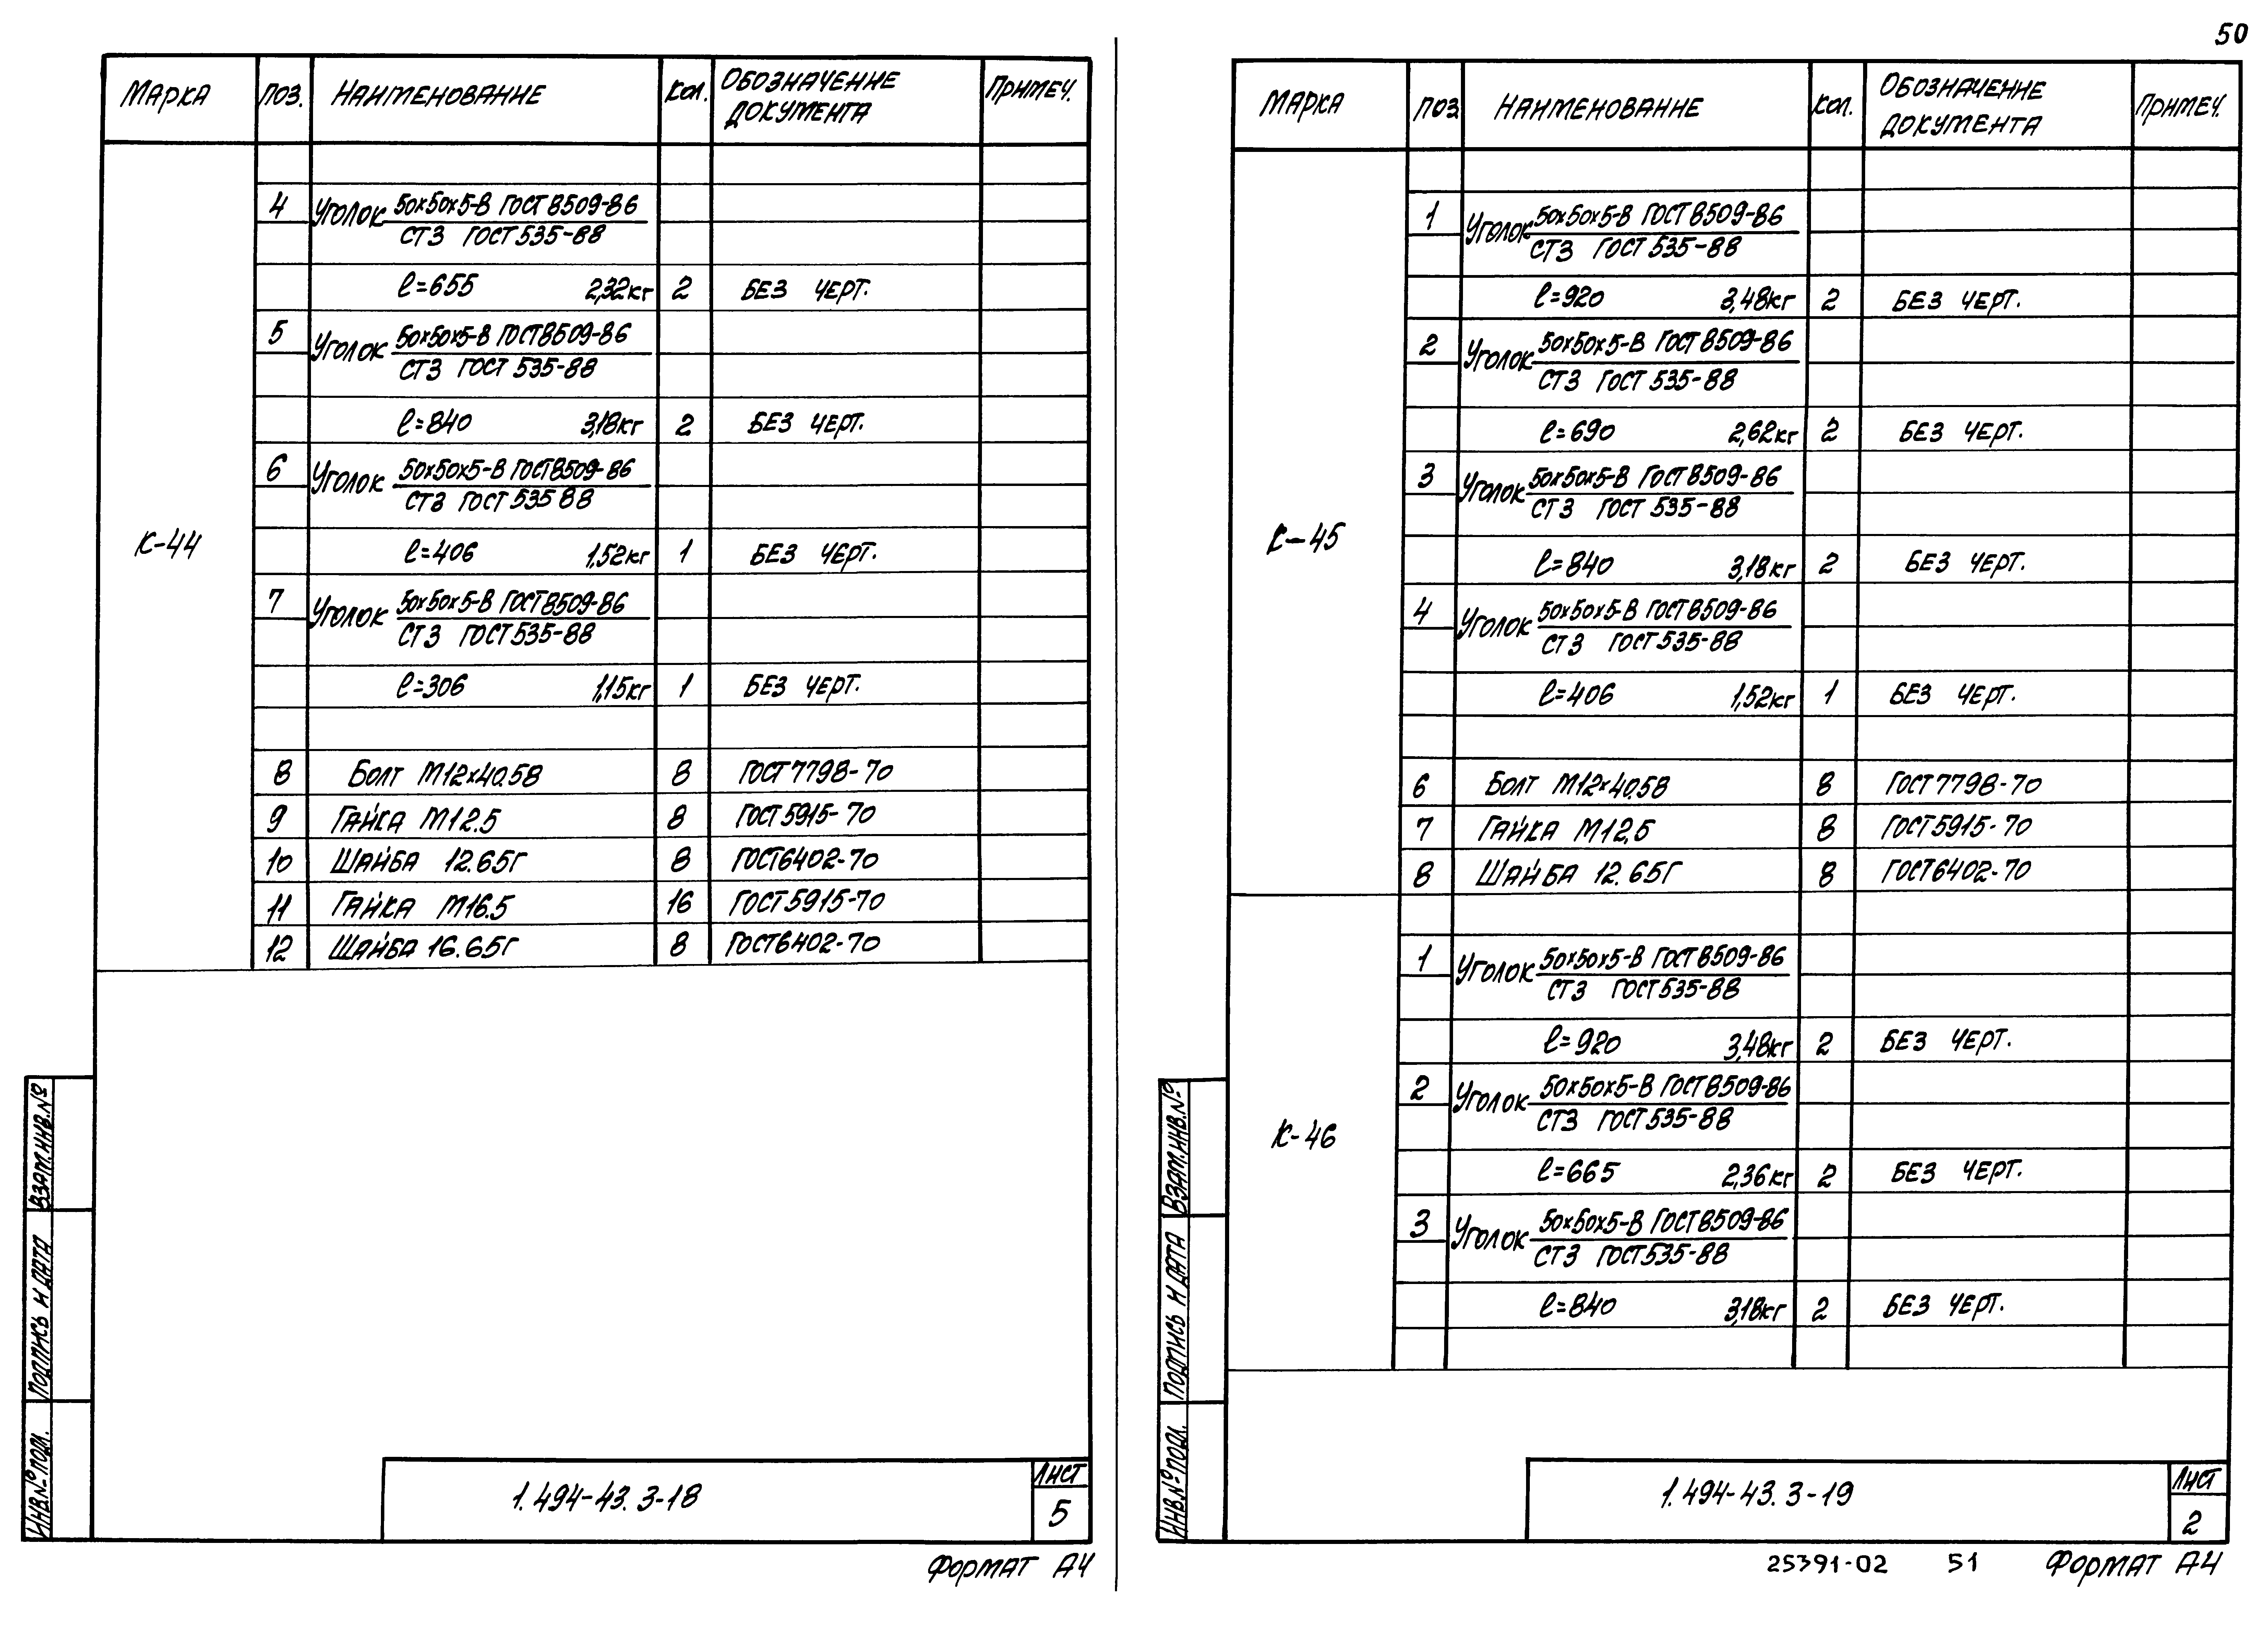 50
Марка Поз. Наименование Кол. Обозначение документа Примеч.
К-44
4 Уголок 50х50х5-В ГОСТ 8509-86
Ст3 ГОСТ 535-88
ℓ=655 2,32кг 2 Без черт.
5 Уголок 50х50х5-В ГОСТ 8509-86
Ст3 ГОСТ 535-88
ℓ=840 3,18кг 2 Без черт.
6 Уголок 50х50х5-В ГОСТ 8509-86
Ст3 ГОСТ 535 88
ℓ=406 1,52кг 1 Без черт.
7 Уголок 50х50х5-В ГОСТ 8509-86
Ст3 ГОСТ 535-88
ℓ=306 1,15кг 1 Без черт.
8 Болт М12х40.58 8 ГОСТ 7798-70
9 Гайка М12.5 8 ГОСТ 5915-70
10 Шайба 12.65Г 8 ГОСТ 6402-70
11 Гайка М16.5 16 ГОСТ 5915-70
12 Шайба 16.65Г 8 ГОСТ 6402-70
Взам.инв.№
Подпись и дата
Инв.№ подл.
1.494-43.3-18
Лист
5
Формат А4
Марка Поз Наименование Кол. Обозначение документа Примеч.
К-45
1 Уголок 50х50х5-В ГОСТ 8509-86
Ст3 ГОСТ 535-88
ℓ=920 3,48кг 2 Без черт.
2 Уголок 50х50х5-В ГОСТ 8509-86
Ст3 ГОСТ 535-88
ℓ=690 2,62кг 2 Без черт.
3 Уголок 50х50х5-В ГОСТ 8509-86
Ст3 ГОСТ 535-88
ℓ=840 3,18кг 2 Без черт.
4 Уголок 50х50х5-В ГОСТ 8509-86
Ст3 ГОСТ 535-88
ℓ=406 1,52кг 1 Без черт.
6 Болт М12х40.58 8 ГОСТ 7798-70
7 Гайка М12,5 8 ГОСТ 5915-70
8 Шайба 12.65Г 8 ГОСТ 6402-70
К-46
1 Уголок 50х50х5-В ГОСТ 8509-86
Ст3 ГОСТ 535-88
ℓ=920 3,48кг 2 Без черт.
2 Уголок 50х50х5-В ГОСТ 8509-86
Ст3 ГОСТ 535-88
ℓ=665 2,36кг 2 Без черт.
3 Уголок 50х50х5-В ГОСТ 8509-86
Ст3 ГОСТ 535-88
ℓ=840 3,18кг 2 Без черт.
Взам.инв.№
Подпись и дата
Инв.№ подл.
1.494-43.3-19
Лист
2
25391-02 51 Формат А4